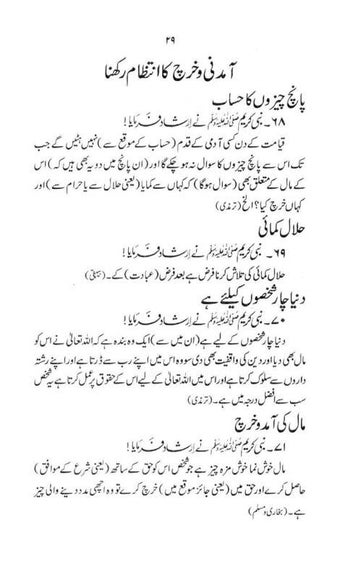 ۴۹
آمدنی و خرچ کا انتظام رکھنا
پانچ چیزوں کا حساب
۶۸۔ نبی کریم ﷺ نے ارشاد فرمایا!
قیامت کے دن کسی آدمی کے قدم (حساب کے موقع سے) نہیں ہٹیں گے جب
تک اس سے پانچ چیزوں کا سوال نہ ہو چکے گا اور (ان پانچ میں دو یہ بھی ہیں کہ) اس
کے مال کے متعلق بھی (سوال ہو گا) کہ کہاں سے کمایا (یعنی حلال سے یا حرام سے) اور
کہاں خرچ کیا؟ الخ (ترمذی)
حلال کمائی
۶۹۔ نبی کریم ﷺ نے ارشاد فرمایا!
حلال کمائی کی تلاش کرنا فرض ہے بعد فرض (عبادت) کے۔ (بیہقی)
دنیا چار شخصوں کیلئے ہے
۷۰۔ نبی کریم ﷺ نے ارشاد فرمایا!
دنیا چار شخصوں کے لیے ہے (ان میں سے) ایک وہ بندہ ہے کہ اللہ تعالیٰ نے اس کو
مال بھی دیا اور دین کی واقفیت بھی دی سو وہ اس میں اپنے رب سے ڈرتا ہے اور اپنے رشتہ
داروں سے سلوک کرتا ہے اور اس میں اللہ تعالیٰ کے لیے اس کے حقوق پر عمل کرتا ہے یہ شخص
سب سے افضل درجہ میں ہے۔ (ترمذی)
مال کی آمد و خرچ
۷۱۔ نبی کریم ﷺ نے ارشاد فرمایا!
مال خوش نما خوش مزہ چیز ہے جو شخص اس کو حق کے ساتھ (یعنی شرع کے موافق)
حاصل کرے اور حق میں (یعنی جائز موقع میں) خرچ کرے تو وہ اچھی مدد دینے والی چیز
ہے۔ (بخاری و مسلم)